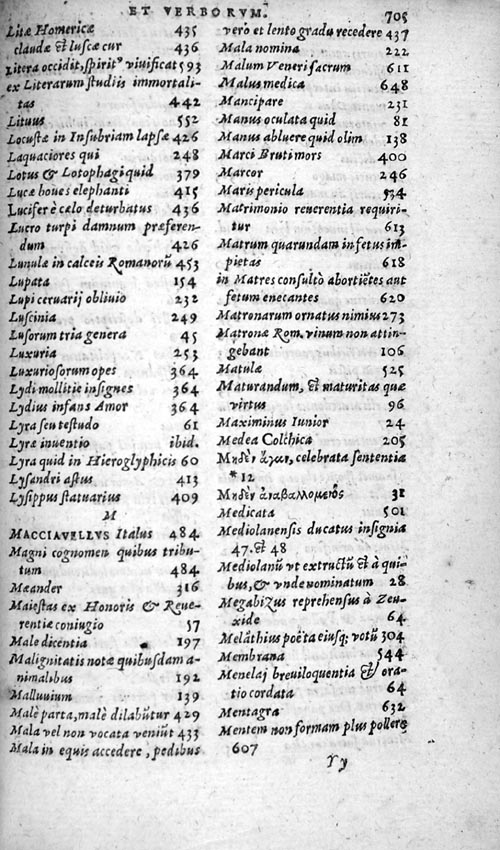 ET VERBORVM. 705
Litæ Homericæ 435
claudæ & luscæ cur 436
Litera occidit, spirit⁹ viuificat 593
ex Literarum studiis immortali-
tas 442
Lituus 552
Locustæ in Insubriam lapsæ 426
Laquaciores qui 248
Lotus & Lotophagi quid 379
Lucæ boues elephanti 415
Lucifer è cælo deturbatus 436
Lucro turpi damnum præferen-
dum 426
Lunulæ in calceis Romanorū 453
Lupata 154
Lupi ceruarij obliuio 232
Luscinia 249
Lusorum tria genera 45
Luxuria 253
Luxuriosorum opes 364
Lydi mollitie insignes 364
Lydius infans Amor 364
Lyra seu testudo 61
Lyræ inuentio ibid.
Lyra quid in Hieroglyphicis 60
Lysandri astus 413
Lysippus statuarius 409
M
MACCIAVELLVS Italus 484
Magni cognomen quibus tribu-
tum 484
Mæander 316
Maiestas ex Honoris & Reue-
rentiæ coniugio 57
Male dicentia 197
Malignitatis notæ quibusdam a-
nimalibus 192
Malluuium 139
Malè parta, malè dilabūtur 429
Mala vel non vocata veniūt 433
Mala in equis accedere, pedibus
verò et lento gradu recedere 437
Mala nomina 222
Malum Veneri sacrum 611
Malus medica 648
Mancipare 231
Manus oculata quid 81
Manus abluere quid olim 138
Marci Bruti mors 400
Marcor 246
Maris pericula 534
Matrimonio reuerentia requiri-
tur 613
Matrum quarundam in fetus im-
pietas 618
in Matres consultò abortiētes aut
fetum enecantes 620
Matronarum ornatus nimius 273
Matronæ Rom. vinum non attin-
gebant 106
Matulæ 525
Maturandum, & maturitas quæ
virtus 96
Maximinus Iunior 24
Medea Colchica 205
Μηδὲν ἄγαν, celebrata sententia
*12
Μηδὲν ἀναβαλλομενος 31
Medicata 501
Mediolanensis ducatus insignia
47. & 48
Mediolanū vt extructū & à qui-
bus, & vnde nominatum 28
Megabizus reprehensus à Zeu-
xide 64
Melāthius poëta eiusq; votū 304
Membrana 544
Menelaj breuiloquentia & ora-
tio cordata 64
Mentagra 632
Mentem non formam plus pollere
607
Yy